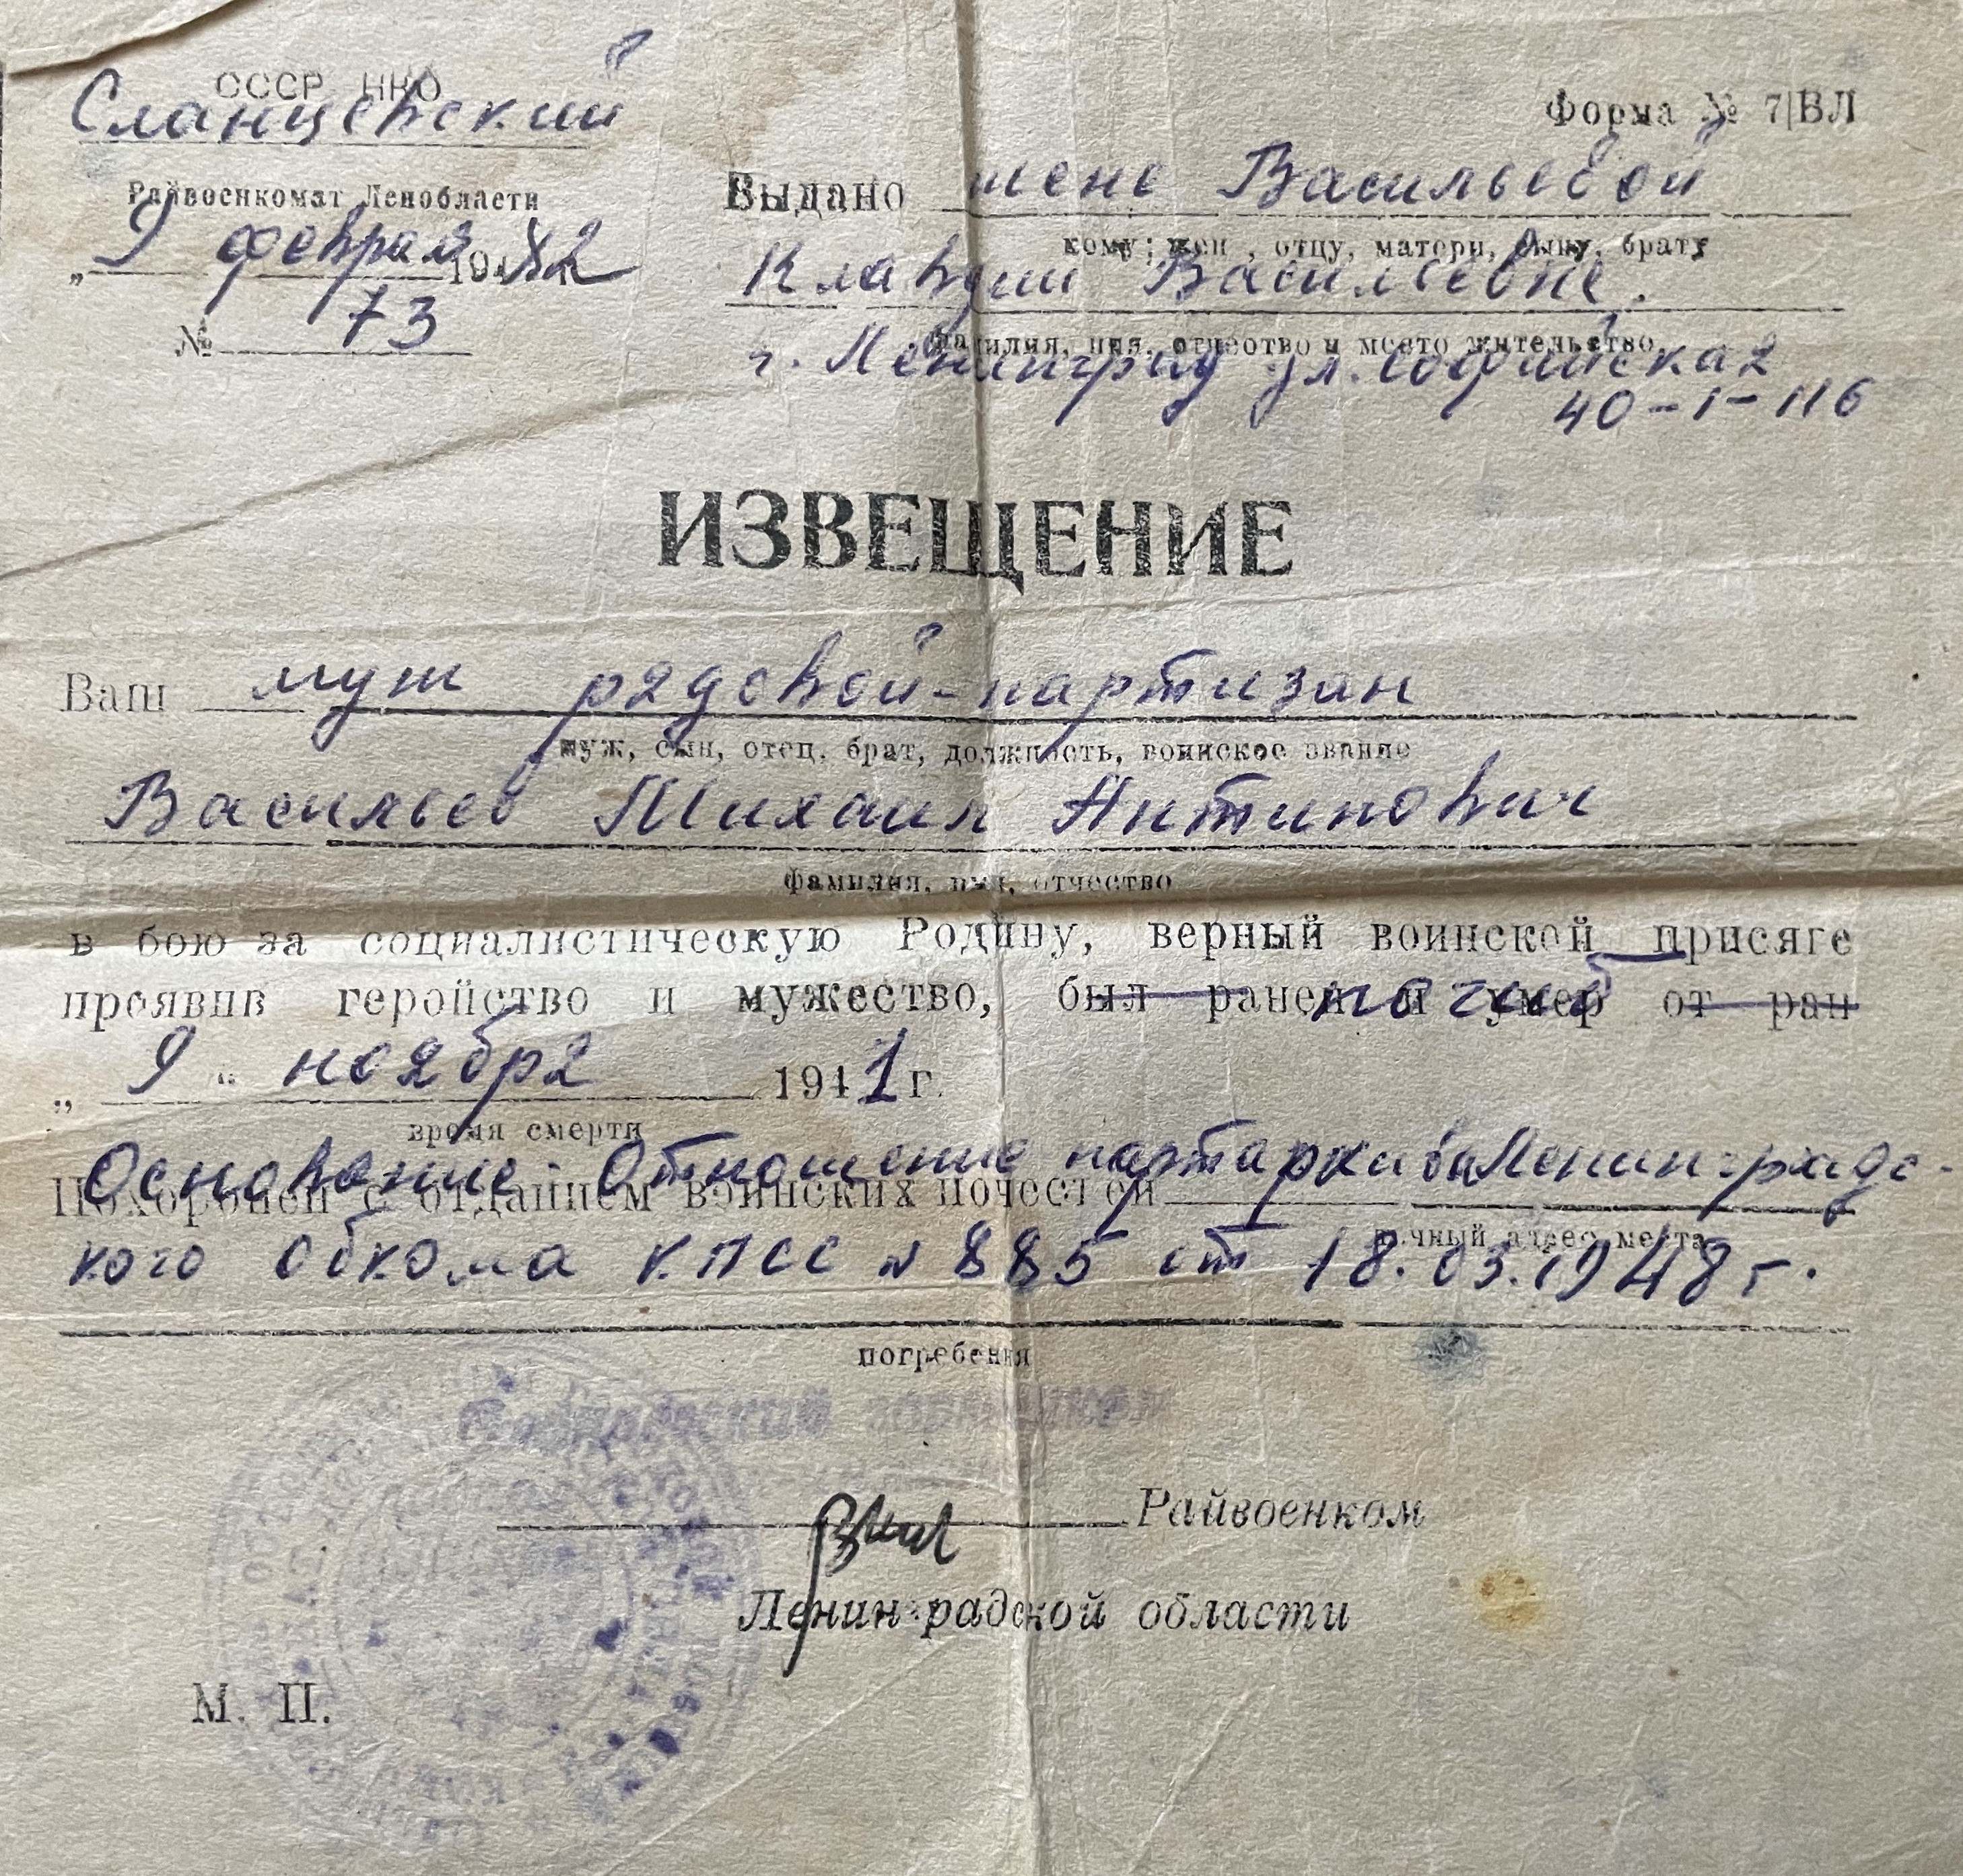 СССР НКО
Сланцевский
Райвоенкомат Ленобласти
„ 9 февраля 19 82
№ 73
Форма № 7|ВЛ
Выдано жене Васильевой
кому; жен , отцу, матери, сыну, брату
Клавдии Васильевне.
фамилия, имя, отчество и место жительство
г. Ленинград ул. Софийская
40-1-116
ИЗВЕЩЕНИЕ
Ваш муж рядовой-партизан
муж, сын, отец, брат, должность, воинское звание
Васильев Михаил Антипович
фамилия, имя, отчество
в бою за социалистическую Родину, верный воинской присяге
проявив геройство и мужество, был ранен и умер от ран
погиб
„ 9 “ ноября 1941 г.
время смерти
Основание: Отношение партархива Ленинградс-
Похоронен с отданием воинских почестей
точный адрес места
кого обкома КПСС № 885 от 18.03.1948 г.
погребения
Райвоенком
Ленинградской области
М. П.